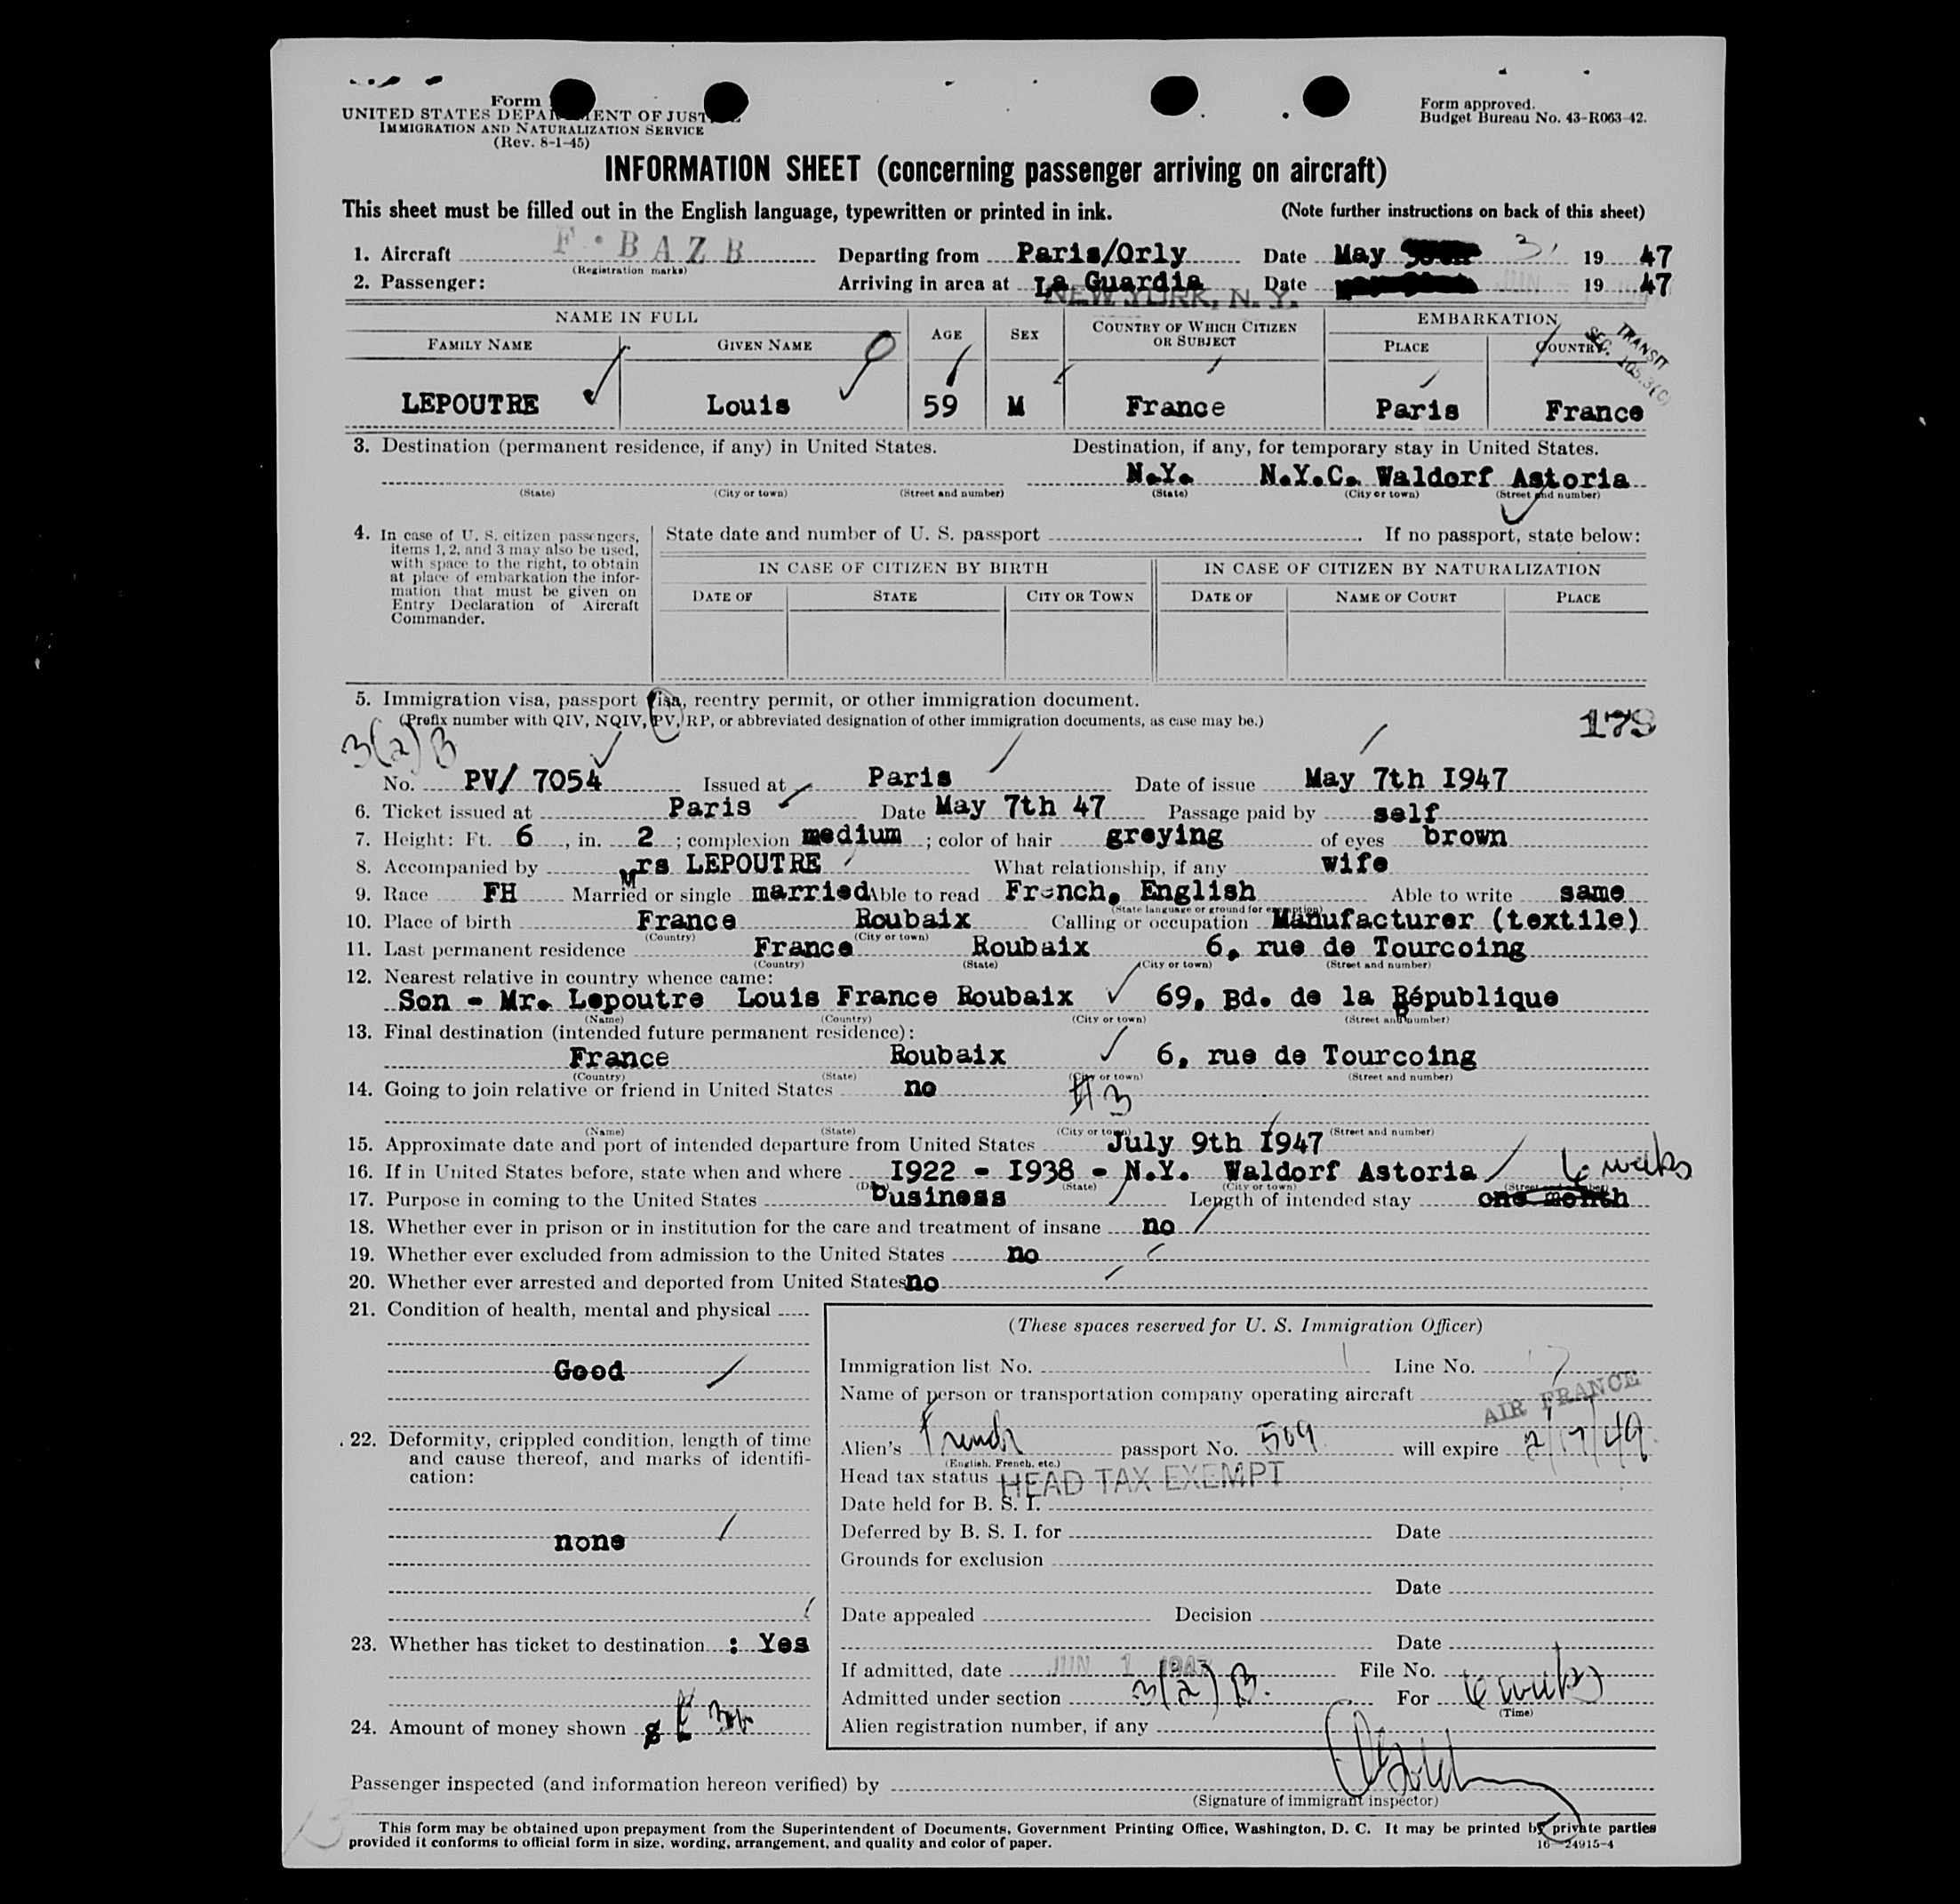 Form
UNITED STATES DEPARTMENT OF JUSTICE
IMMIGRATION AND NATURALIZATION SERVICE
(Rev. 8-1-45)
Form approved.
Budget Bureau No. 43-R063-42.
INFORMATION SHEET (concerning passenger arriving on aircraft)
This sheet must be filled out in the English language, typewritten or printed in ink. (Note further instructions on back of this sheet)
1. Aircraft F·BAZB Departing from Paris/Orly Date May 19 47
(Registration marks)
2. Passenger: Arriving in area at La Guardia Date 19 47
NEW YORK, N. Y.
NAME IN FULL AGE SEX COUNTRY OF WHICH CITIZEN OR SUBJECT EMBARKATION
FAMILY NAME GIVEN NAME PLACE COUNTRY
TRANSIT
SEC. 105.3(C)
LEPOUTRE Louis 59 M France Paris France
3. Destination (permanent residence, if any) in United States. Destination, if any, for temporary stay in United States.
N.Y. N.Y.C. Waldorf Astoria
(State) (City or town) (Street and number) (State) (City or town) (Street and number)
4. In case of U. S. citizen passengers, items 1, 2, and 3 may also be used, with space to the right, to obtain at place of embarkation the information that must be given on Entry Declaration of Aircraft Commander.
State date and number of U. S. passport . If no passport, state below:
IN CASE OF CITIZEN BY BIRTH IN CASE OF CITIZEN BY NATURALIZATION
DATE OF STATE CITY OR TOWN DATE OF NAME OF COURT PLACE
5. Immigration visa, passport visa, reentry permit, or other immigration document.
(Prefix number with QIV, NQIV, PV, RP, or abbreviated designation of other immigration documents, as case may be.)
179
3(2)B
No. PV/ 7054 Issued at Paris Date of issue May 7th I947
6. Ticket issued at Paris Date May 7th 47 Passage paid by self
7. Height: Ft. 6, in. 2; complexion medium; color of hair greying of eyes brown
8. Accompanied by Mrs LEPOUTRE What relationship, if any wife
9. Race FH Married or single married Able to read French, English Able to write same
(State language or ground for exemption)
10. Place of birth France Roubaix Calling or occupation Manufacturer (textile)
(Country) (City or town)
11. Last permanent residence France Roubaix 6, rue de Tourcoing
(Country) (State) (City or town) (Street and number)
12. Nearest relative in country whence came:
Son - Mr. Lepoutre Louis France Roubaix 69, Bd. de la République
(Name) (Country) (City or town) (Street and number)
13. Final destination (intended future permanent residence):
France Roubaix 6, rue de Tourcoing
(Country) (State) (City or town) (Street and number)
14. Going to join relative or friend in United States no
#3
(Name) (State) (City or town) (Street and number)
15. Approximate date and port of intended departure from United States July 9th I947
16. If in United States before, state when and where I922 - I938 - N.Y. Waldorf Astoria
6 weeks
(Date) (State) (City or town) (Street and number)
17. Purpose in coming to the United States business Length of intended stay one month
18. Whether ever in prison or in institution for the care and treatment of insane no
19. Whether ever excluded from admission to the United States no
20. Whether ever arrested and deported from United States no
21. Condition of health, mental and physical
Good
22. Deformity, crippled condition, length of time and cause thereof, and marks of identification:
none
23. Whether has ticket to destination : Yes
24. Amount of money shown
(These spaces reserved for U. S. Immigration Officer)
Immigration list No. Line No.
Name of person or transportation company operating aircraft
AIR FRANCE
Alien's French passport No. 509 will expire 2/17/49
(English, French, etc.)
Head tax status HEAD TAX EXEMPT
Date held for B. S. I.
Deferred by B. S. I. for Date
Grounds for exclusion
Date
Date appealed Decision
Date
If admitted, date JUN 1 1947 File No.
Admitted under section 3(2)B. For 6 weeks
(Time)
Alien registration number, if any
Passenger inspected (and information hereon verified) by
(Signature of immigrant inspector)
This form may be obtained upon prepayment from the Superintendent of Documents, Government Printing Office, Washington, D. C. It may be printed by private parties
provided it conforms to official form in size, wording, arrangement, and quality and color of paper.
16—24915-4